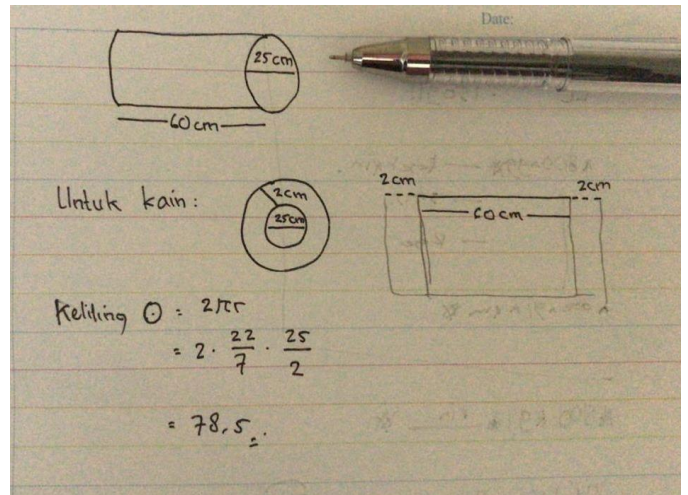 Date:
25cm
60cm
Untuk kain:
2cm
25cm
2cm
2cm
60cm
Keliling O = 2πr
= 2 · 22/7 · 25/2
= 78,5